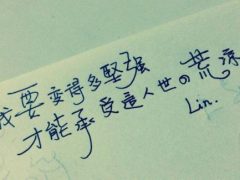 我要变得多堅强
才能承受這人世の荒涼
Lin.